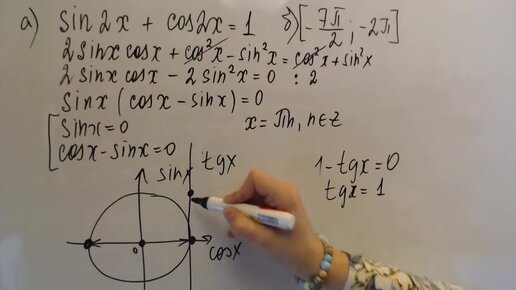 а) sin2x + cos2x = 1 б) [-7π/2; -2π]
2sinx cosx + cos²x - sin²x = cos²x + sin²x
2sinx cosx - 2sin²x = 0 : 2
sinx (cosx - sinx) = 0
[ sinx = 0 x = πn, n∈z
cosx - sinx = 0
1 - tgx = 0
tgx = 1
sinx tgx
0 cosx